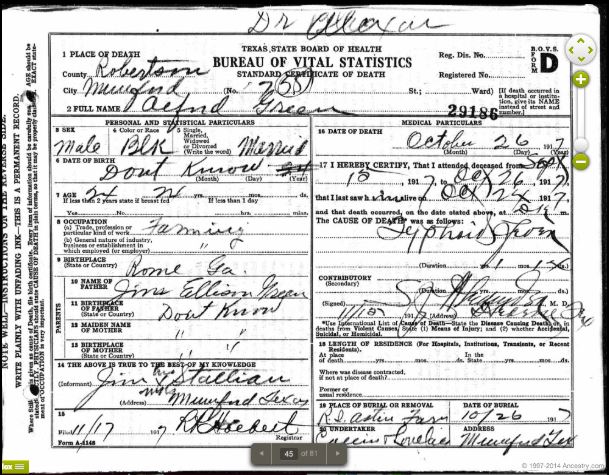 Dr
TEXAS STATE BOARD OF HEALTH
BUREAU OF VITAL STATISTICS
STANDARD CERTIFICATE OF DEATH
B.O.V.S. FORM D
1 PLACE OF DEATH
Reg. Dis. No.
County Robertson
Registered No.
City Mumford (No. St.; Ward)
[If death occurred in a hospital or institution, give its NAME instead of street and number.]
29186
2 FULL NAME Alfred Green
PERSONAL AND STATISTICAL PARTICULARS
3 SEX Male
4 Color or Race Blk
5 Single, Married, Widowed or Divorced (Write the word) Married
6 DATE OF BIRTH Dont Know
(Month) (Day) (Year)
7 AGE 24 yrs. mos. ds.
If less than 2 years state if breast fed If less than 1 day
Yes No hrs. min.
8 OCCUPATION
(a) Trade, profession or particular kind of work Farming
(b) General nature of industry, business or establishment in which employed (or employer) "
9 BIRTHPLACE (State or Country) Rome Ga.
PARENTS
10 NAME OF FATHER Jim Green
11 BIRTHPLACE OF FATHER (State or Country) Dont Know
12 MAIDEN NAME OF MOTHER " "
13 BIRTHPLACE OF MOTHER (State or Country) " "
14 THE ABOVE IS TRUE TO THE BEST OF MY KNOWLEDGE
(Informant) Jim
(Address) Mumford Texas
15
Filed 11/17 1917
Registrar
Form A-1146
MEDICAL PARTICULARS
16 DATE OF DEATH
October 26 1917
(Month) (Day) (Year)
17 I HEREBY CERTIFY, That I attended deceased from Sept
15, 1917, to Oct 26, 1917,
that I last saw h im alive on Oct 24, 1917,
and that death occurred, on the date stated above, at m.
The CAUSE OF DEATH* was as follows:
Typhoid Fever
(Duration yrs. mos. ds.
CONTRIBUTORY
(Secondary)
(Duration yrs. mos. ds.
(Signed) M. D.
191 (Address) Hearne Tex
*Use International List of Cause of Death—State the Disease Causing Death, or, in deaths from Violent Causes, State (1) Means of Injury; and (2) whether Accidental, Suicidal, or Homicidal.
18 LENGTH OF RESIDENCE (For Hospitals, Institutions, Transients, or Recent Residents).
At place of death yrs. mos. ds. In the State yrs. mos. ds.
Where was disease contracted, if not at place of death?
Former or usual residence
19 PLACE OF BURIAL OR REMOVAL
R.S. Astin Farm
DATE OF BURIAL
10/26 1917
20 UNDERTAKER
ADDRESS
Mumford Tex
NOTE WELL—INSTRUCTIONS ON THE REVERSE SIDE.
WRITE PLAINLY WITH UNFADING INK—THIS IS A PERMANENT RECORD.
45 of 81
© 1997-2014 Ancestry.com